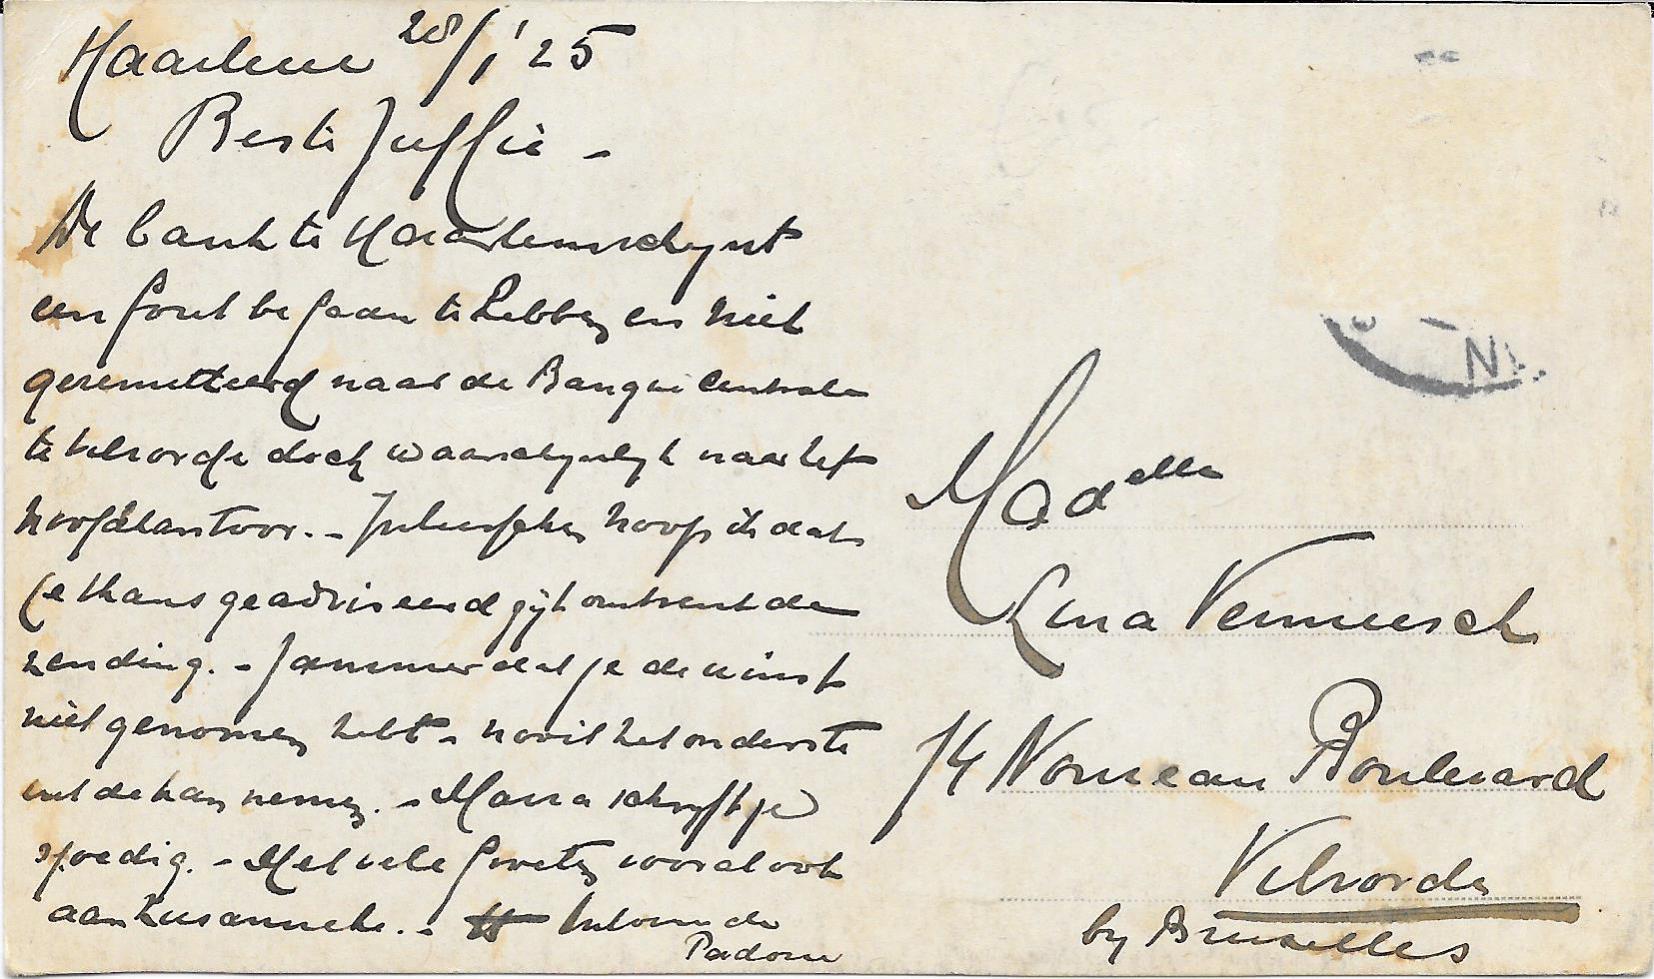 Haarlem 28/1 '25
Beste Juffie -
De bank te Haarlem schynt
een fout begaan te hebben en niet
geremitteerd naar de Banque Centrale
te Vilvorde doch waarschynlyk naar het
hoofdkantoor. - Intusschen hoop ik dat
je thans geadviseerd zyt omtrent de
zending. - Jammer dat je de winst
niet genomen hebt - nooit het onderste
uit de kan nemen. - Maria schryft je
spoedig. - Met vele groeten vooral ook
aan Susanneke. -
Padom
Madelle
Lina Vermeersch
14 Nouveau Boulevard
Vilvorde
by Bruxelles
N